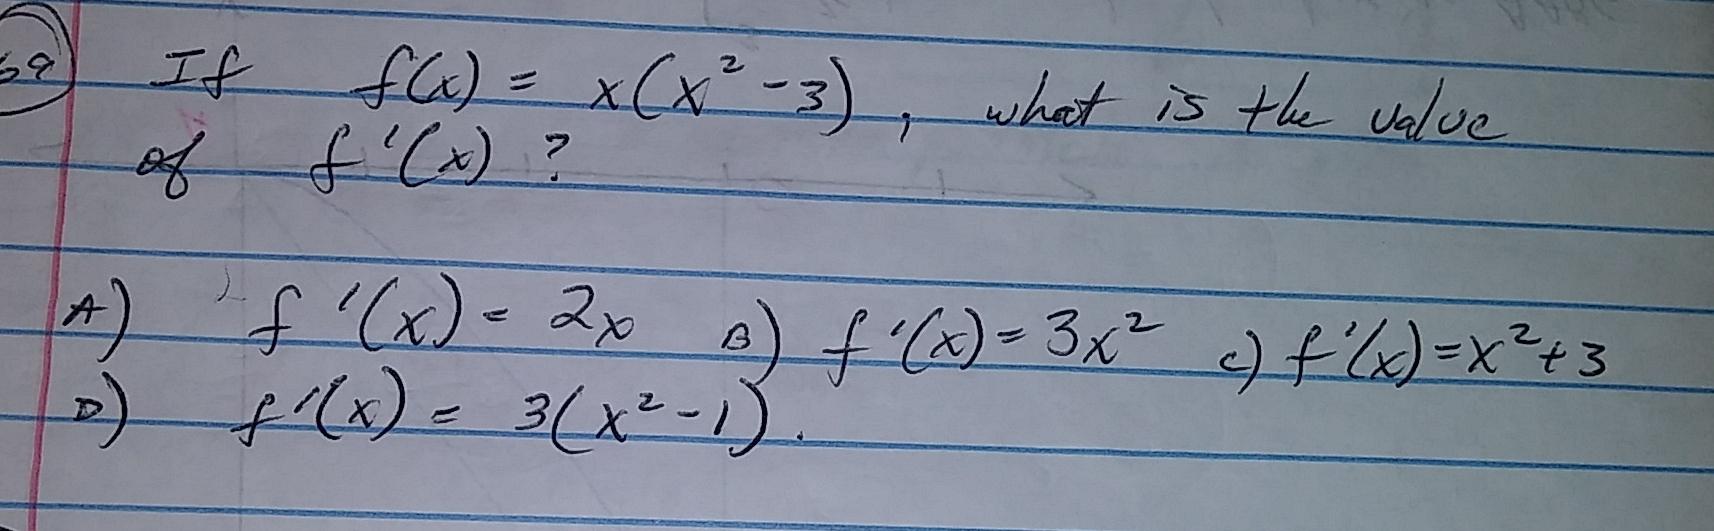 If f(x) = x(x² - 3), what is the value
of f'(x) ?
A) f'(x) = 2x B) f'(x) = 3x² C) f'(x) = x² + 3
D) f'(x) = 3(x² - 1).